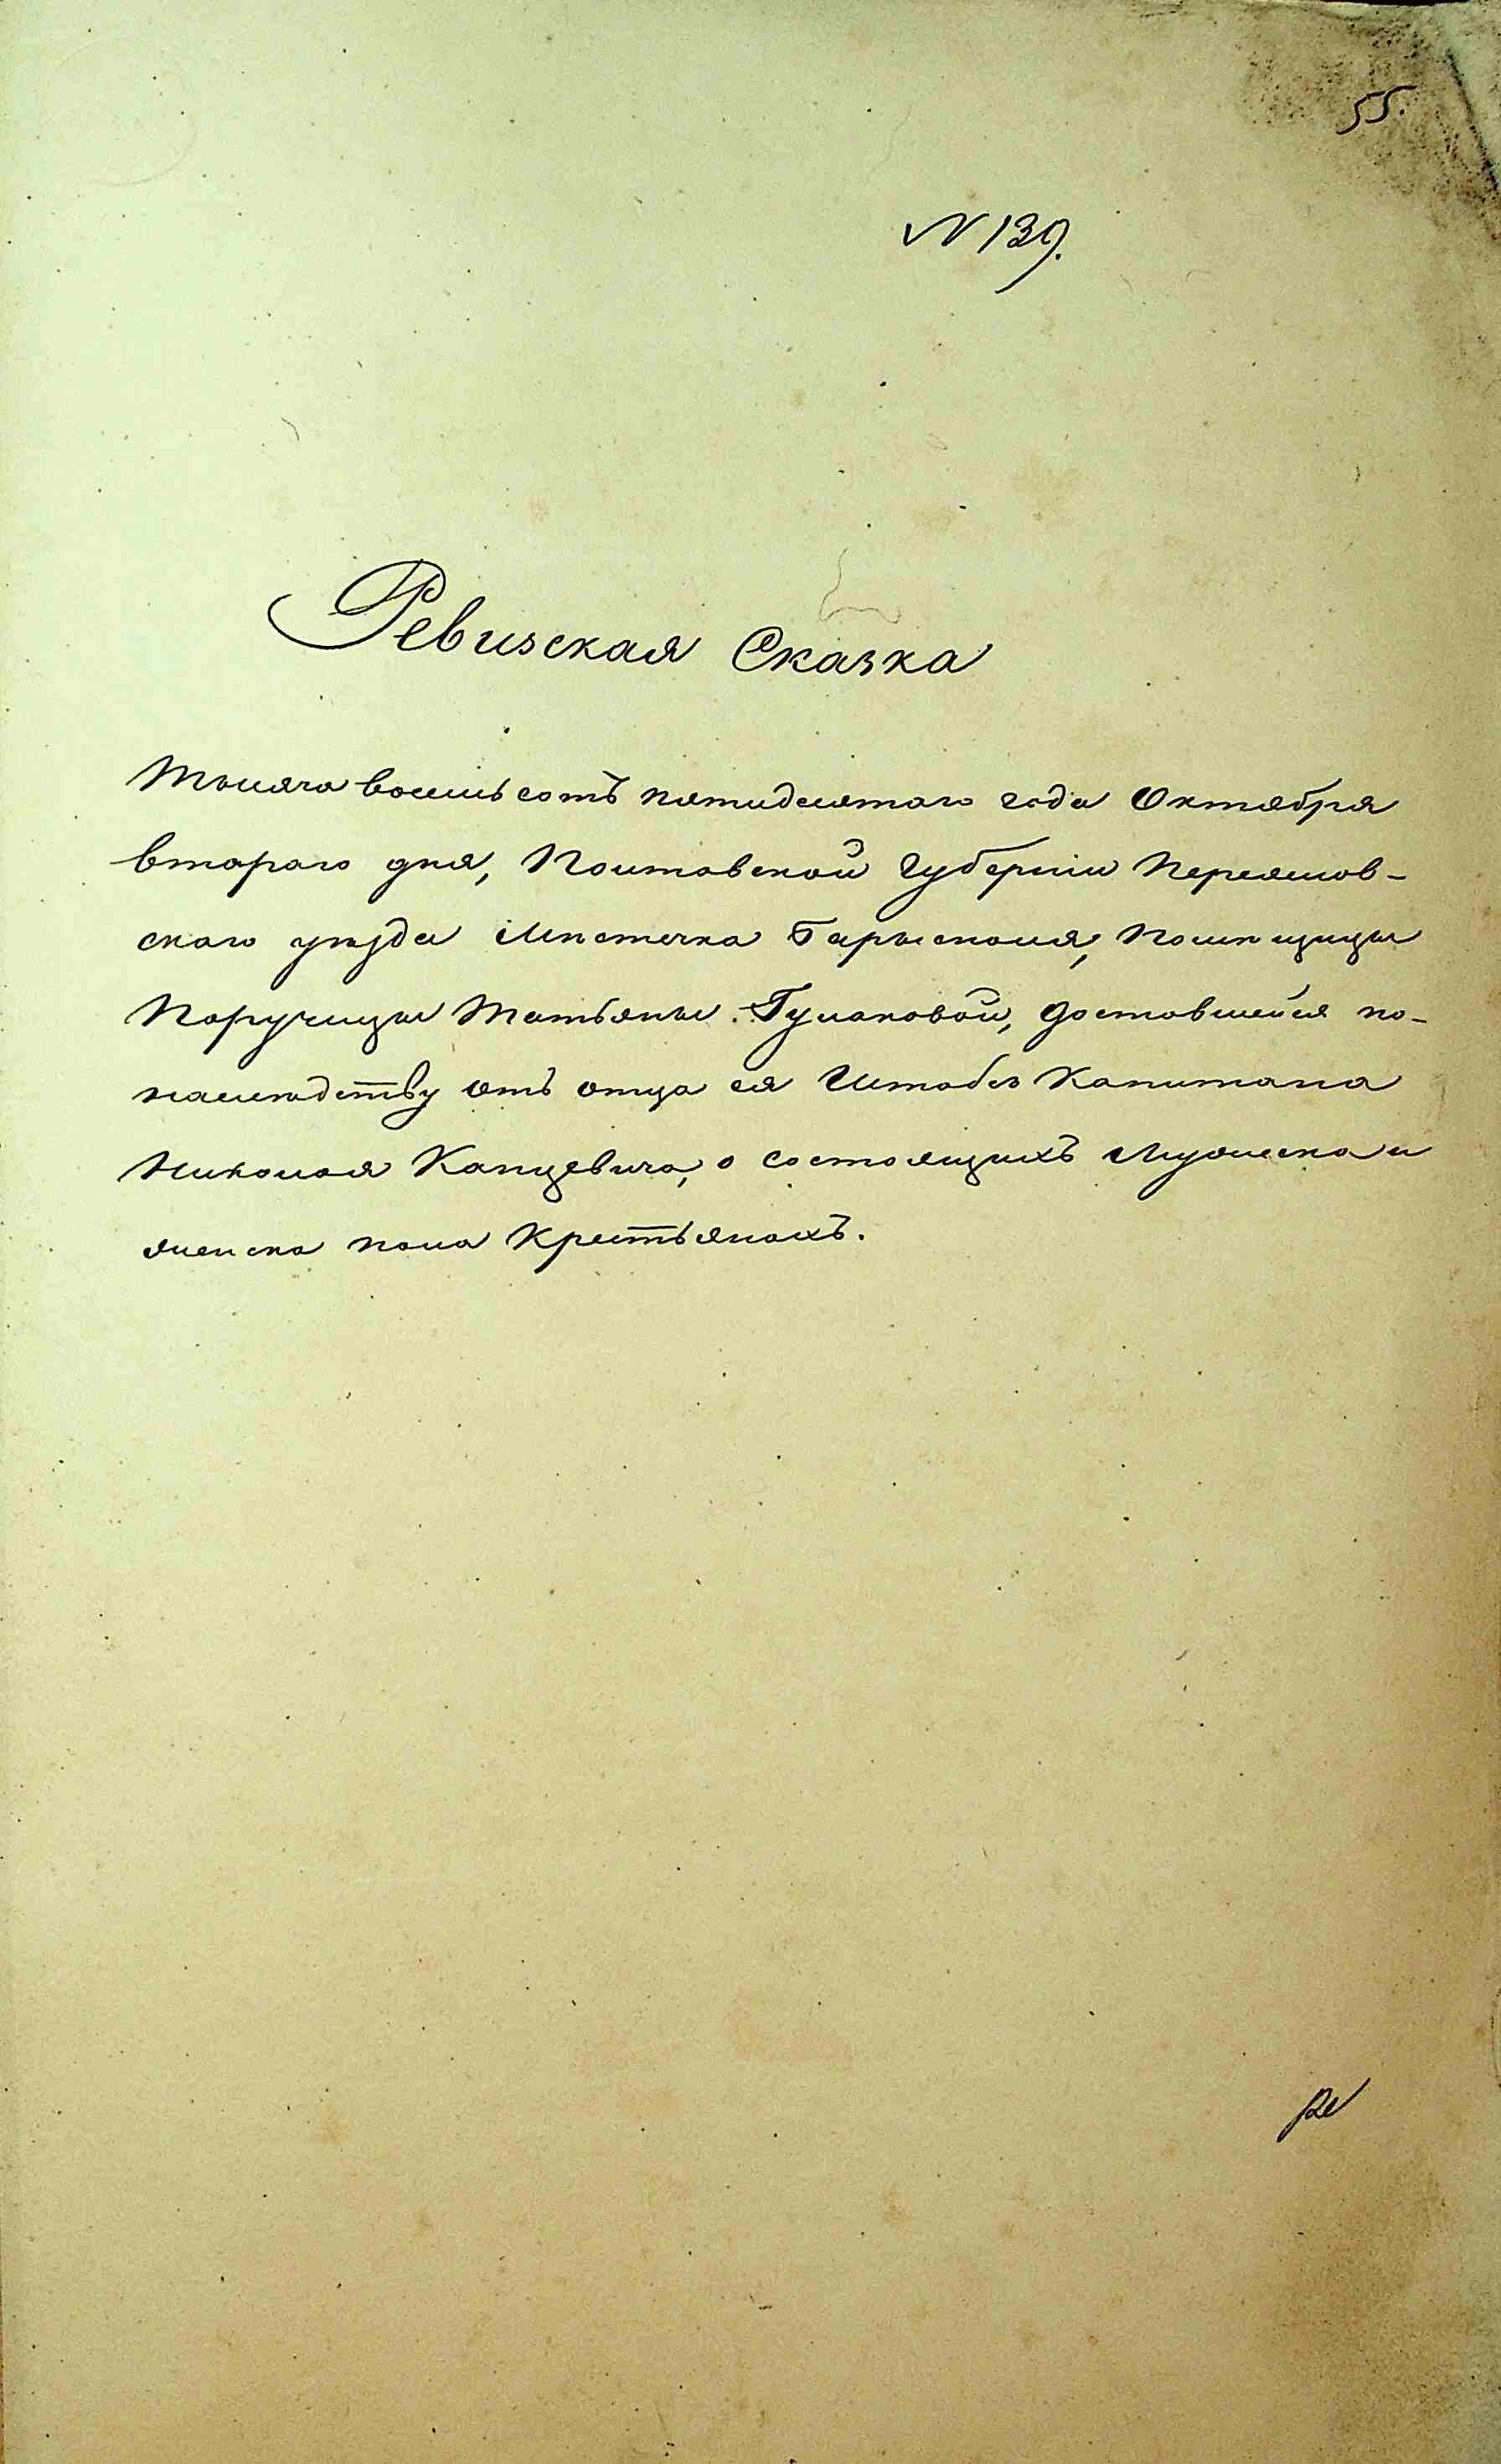 55.
N 139.
Ревизская Сказка
Тысяча восемь сотъ пятидесятаго года Октября
втораго дня, Полтавской Губерніи Переяслов-
скаго уѣзда Мѣстечка Барышполя, Помѣщицы
Поручицы Татьяны Гулаковой, доставшейся по-
наслѣдству отъ отца ея Штабсъ Капитана
Николая Капцевича, о состоящихъ Мужеска и
женска пола Крестьянахъ.
Ре